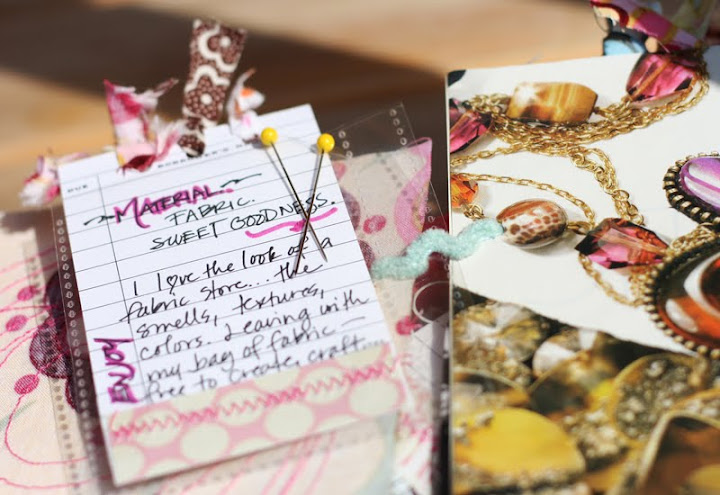 DUE BORROWER'S N
MATERIAL.
FABRIC.
SWEET GOODNESS.
I love the look of a
fabric store... the
smells, textures,
colors. Leaving with
my bag of fabric —
free to create, craft...
ENJOY